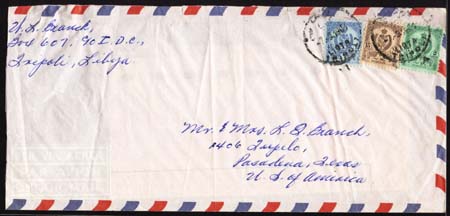 W. L. Branch,
Box 607, % I. D. C.,
Tripoli, Libya
Mr. & Mrs. L. D. Branch,
1406 Tupelo,
Pasadena, Texas
U. S. of America